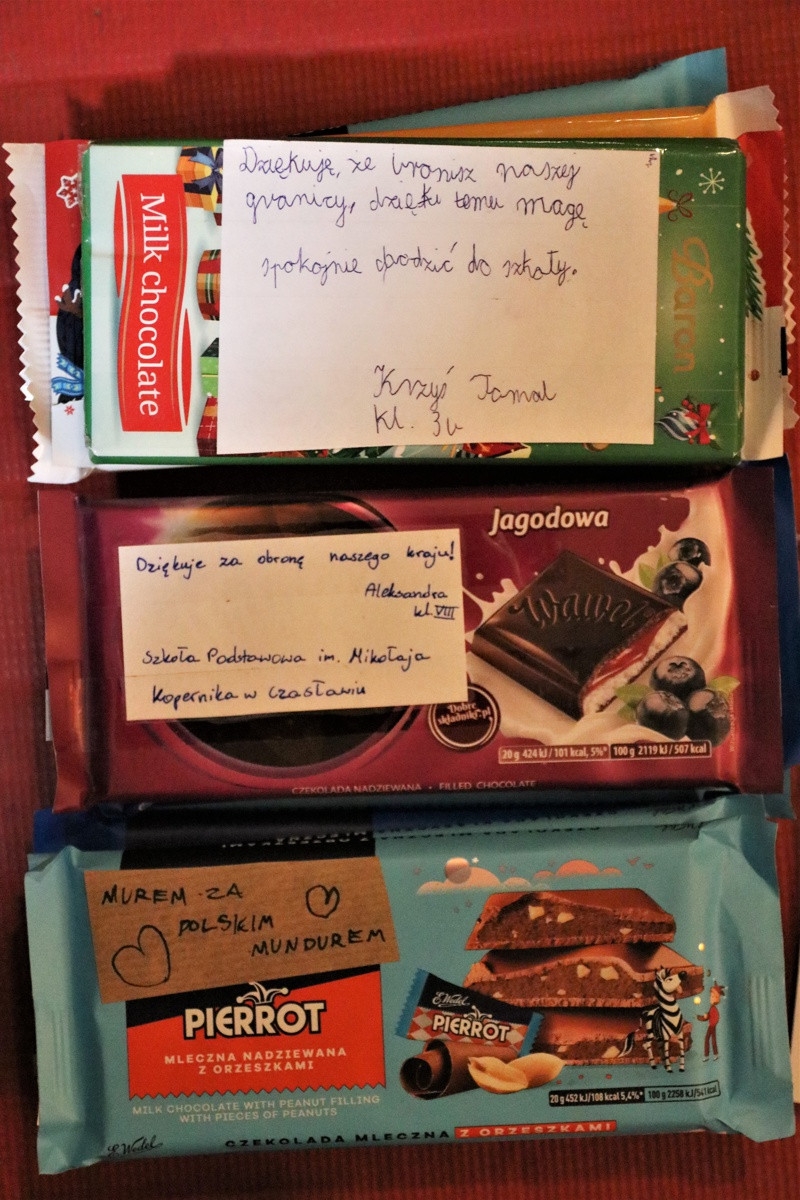 Dziękuję, że bronisz naszej
granicy, dzięki temu magę
spokojnie chodzić do szkały.
Krzyś Tamal
Kl. 3
Milk chocolate
Baron
Jagodowa
Wawel
Dziękuje za obronę naszego kraju!
Aleksandra
kl. VIII
Szkoła Podstawowa im. Mikołaja
Kopernika w Czasławiu
Dobre
składniki.pl
20 g 424 kJ / 101 kcal, 5%* 100 g 2119 kJ / 507 kcal
CZEKOLADA NADZIEWANA • FILLED CHOCOLATE
MUREM ZA
POLSKIM
MUNDUREM
PIERROT
MLECZNA NADZIEWANA
Z ORZESZKAMI
MILK CHOCOLATE WITH PEANUT FILLING
WITH PIECES OF PEANUTS
E. Wedel
PIERROT
20 g 452 kJ/108 kcal 5,4%* 100 g 2258 kJ/541 kcal
E. Wedel
CZEKOLADA MLECZNA Z ORZESZKAMI